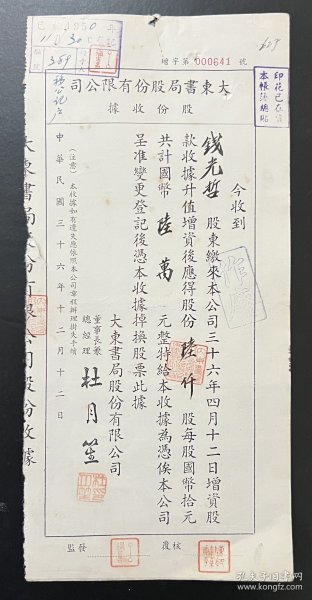 增字第 000641 號
大東書局股份有限公司
股份收據
印花已在
本帳簿總貼
今收到
錢光哲 股東繳來本公司三十六年四月十二日增資股
款收據升值增資後應得股份 陸仟 股每股國幣拾元
共計國幣 陸萬 元整特給本收據為憑俟本公司
呈准變更登記後憑本收據掉換股票此據
大東書局股份有限公司
董事長兼
總經理 杜月笙
(注意) 本收據如有遺失應依照本公司章程辦理掛失手續
中華民國三十六年十二月十二日
核
覆
監發
389
大東書局股份有限公司股份收據